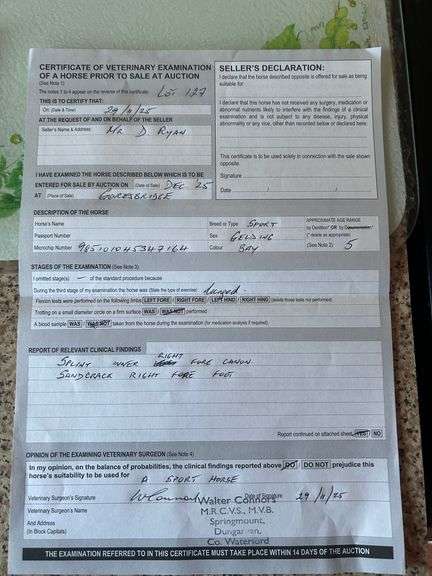 CERTIFICATE OF VETERINARY EXAMINATION
OF A HORSE PRIOR TO SALE AT AUCTION
(See Note 1)
The notes 1 to 4 appear on the reverse of this certificate. LOT 127
THIS IS TO CERTIFY THAT:
On: (Date & Time) 29/11/25
AT THE REQUEST OF AND ON BEHALF OF THE SELLER
Seller's Name & Address: MR D RYAN
I HAVE EXAMINED THE HORSE DESCRIBED BELOW WHICH IS TO BE
ENTERED FOR SALE BY AUCTION ON (Date of Sale) DEC '25
AT (Place of Sale) GORESBRIDGE
SELLER'S DECLARATION:
I declare that the horse described opposite is offered for sale as being
suitable for
I declare that this horse has not received any surgery, medication or
abnormal nutrients likely to interfere with the findings of a clinical
examination and is not subject to any disease, injury, physical
abnormality or any vice, other than recorded below or declared here:
This certificate is to be used solely in connection with the sale shown
opposite.
Signature
Date / /
DESCRIPTION OF THE HORSE
Horse's Name
Breed or Type SPORT
APPROXIMATE AGE RANGE
Passport Number
Sex GELDING
by Dentition* OR by
(* delete as appropriate)
Microchip Number 985101045347164
Colour BAY
(See Note 2) 5
STAGES OF THE EXAMINATION (See Note 3)
I omitted stage(s) — of the standard procedure because
During the third stage of my examination the horse was (State the type of exercise) lunged
Flexion tests were performed on the following limbs LEFT FORE RIGHT FORE LEFT HIND RIGHT HIND (delete those tests not performed)
Trotting on a small diameter circle on a firm surface WAS WAS NOT performed
A blood sample WAS WAS NOT taken from the horse during the examination (for medication analysis if required)
REPORT OF RELEVANT CLINICAL FINDINGS
SPLINT INNER RIGHT FORE CANON
SANDCRACK RIGHT FORE FOOT
Report continued on attached sheet YES NO
OPINION OF THE EXAMINING VETERINARY SURGEON (See Note 4)
In my opinion, on the balance of probabilities, the clinical findings reported above DO DO NOT prejudice this
horse's suitability to be used for
A SPORT HORSE
Veterinary Surgeon's Signature W Connors Date of Signature 29/11/25
Veterinary Surgeon's Name
And Address
(In Block Capitals)
Walter Connors
M.R.C.V.S., M.V.B.
Springmount,
Co. Waterford
THE EXAMINATION REFERRED TO IN THIS CERTIFICATE MUST TAKE PLACE WITHIN 14 DAYS OF THE AUCTION